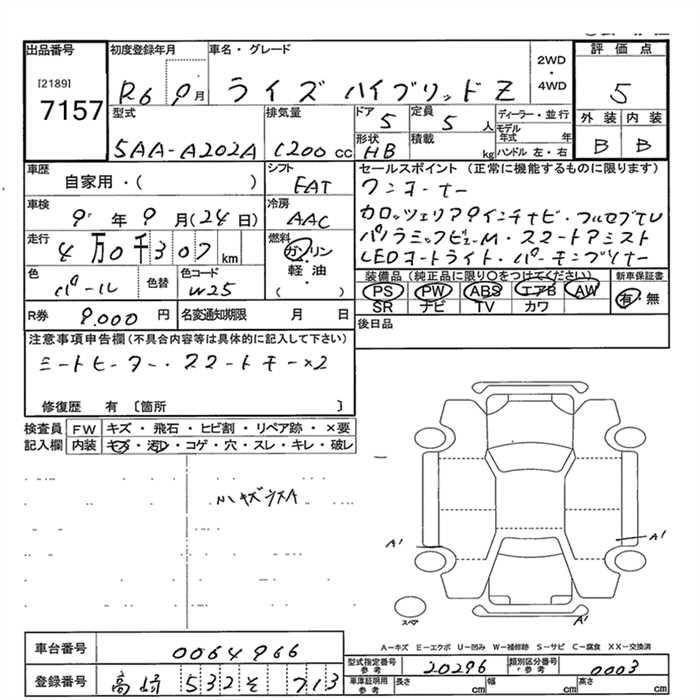 出品番号
[2189]
7157
初度登録年月
R6 9月
車名・グレード
ライズ ハイブリッドZ
2WD
・
4WD
評価点
5
型式
5AA-A202A
排気量
1200 cc
ドア
5
定員
5 人
ディーラー・並行
モデル年式 年
形状
HB
積載 kg
ハンドル 左・右
外装 内装
B B
車歴
自家用・( )
シフト
FAT
車検
9年9月(24日)
冷房
AAC
走行
4万0千307km
燃料
ガソリン
・
軽油
( )
色
パール
色替
色コード
W25
R券
9.000 円
名変通知期限 月 日
セールスポイント (正常に機能するものに限ります)
ワンオーナー
カロッツェリア9インチナビ・フルセグTV
パノラミックビューM・スマートアシスト
LEDヘッドライト・
装備品(純正品に限り○をつけてください)
PS PW ABS エアB AW
SR ナビ TV カワ
新車保証書
有・無
後日品
注意事項申告欄(不具合内容等は具体的に記入して下さい)
シートヒーター・スマートキー×2
修復歴 有 〔箇所 〕
検査員 FW キズ・飛石・ヒビ割・リペア跡・×要
記入欄 内装 キズ・汚レ・コゲ・穴・スレ・キレ・破レ
小キズ
A'
A'
スペア
A'
A-キズ E-エクボ U-凹み W-補修跡 S-サビ C-腐食 XX-交換済
車台番号
0064966
登録番号
高崎 532 そ 713
型式指定番号
参考
20296
類別区分番号
参考
0003
車庫証明用
参考
長さ cm 幅 cm 高さ cm